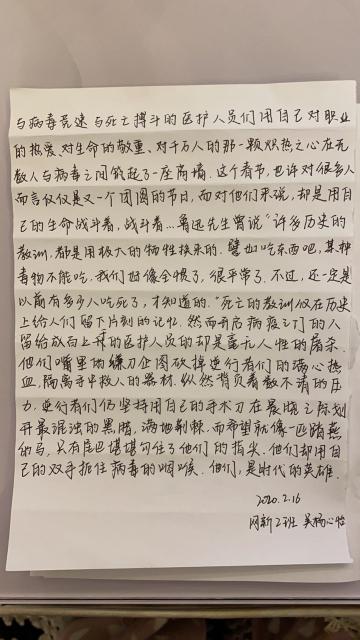 与病毒竞速与死亡搏斗的医护人员们用自己对职业
的热爱、对生命的敬重、对千万人的那一颗炽热之心在无
数人与病毒之间筑起了一座高墙。这个春节，也许对很多人
而言仅仅是又一个团圆的节日，而对他们来说，却是用自
己的生命战斗着，战斗着…鲁迅先生曾说“许多历史的
教训，都是用极大的牺牲换来的。譬如吃东西吧，某种
毒物不能吃，我们好像全惯了，很平常了。不过，还一定是
以前有多少人吃死了，才知道的。”死亡的教训仅在历史
上给人们留下片刻的记忆。然而开启病疫之门的人
留给战白上的医护人员的却是毫无人性的屠杀。
他们嘴里的镰刀企图砍掉逆行者们的满心热
血，隔离手中救人的器材。纵然背负着数不清的压
力，逆行者们仍坚持用自己的手术刀在晨晓之际划
开最混浊的黑暗，满地荆棘，而希望就像一匹踏燕
的马，只有尾巴堪堪勾住了他们的指尖。他们却用自
己的双手扼住病毒的咽喉。他们，是时代的英雄。
2020.2.16
网新2班 吴杨心怡